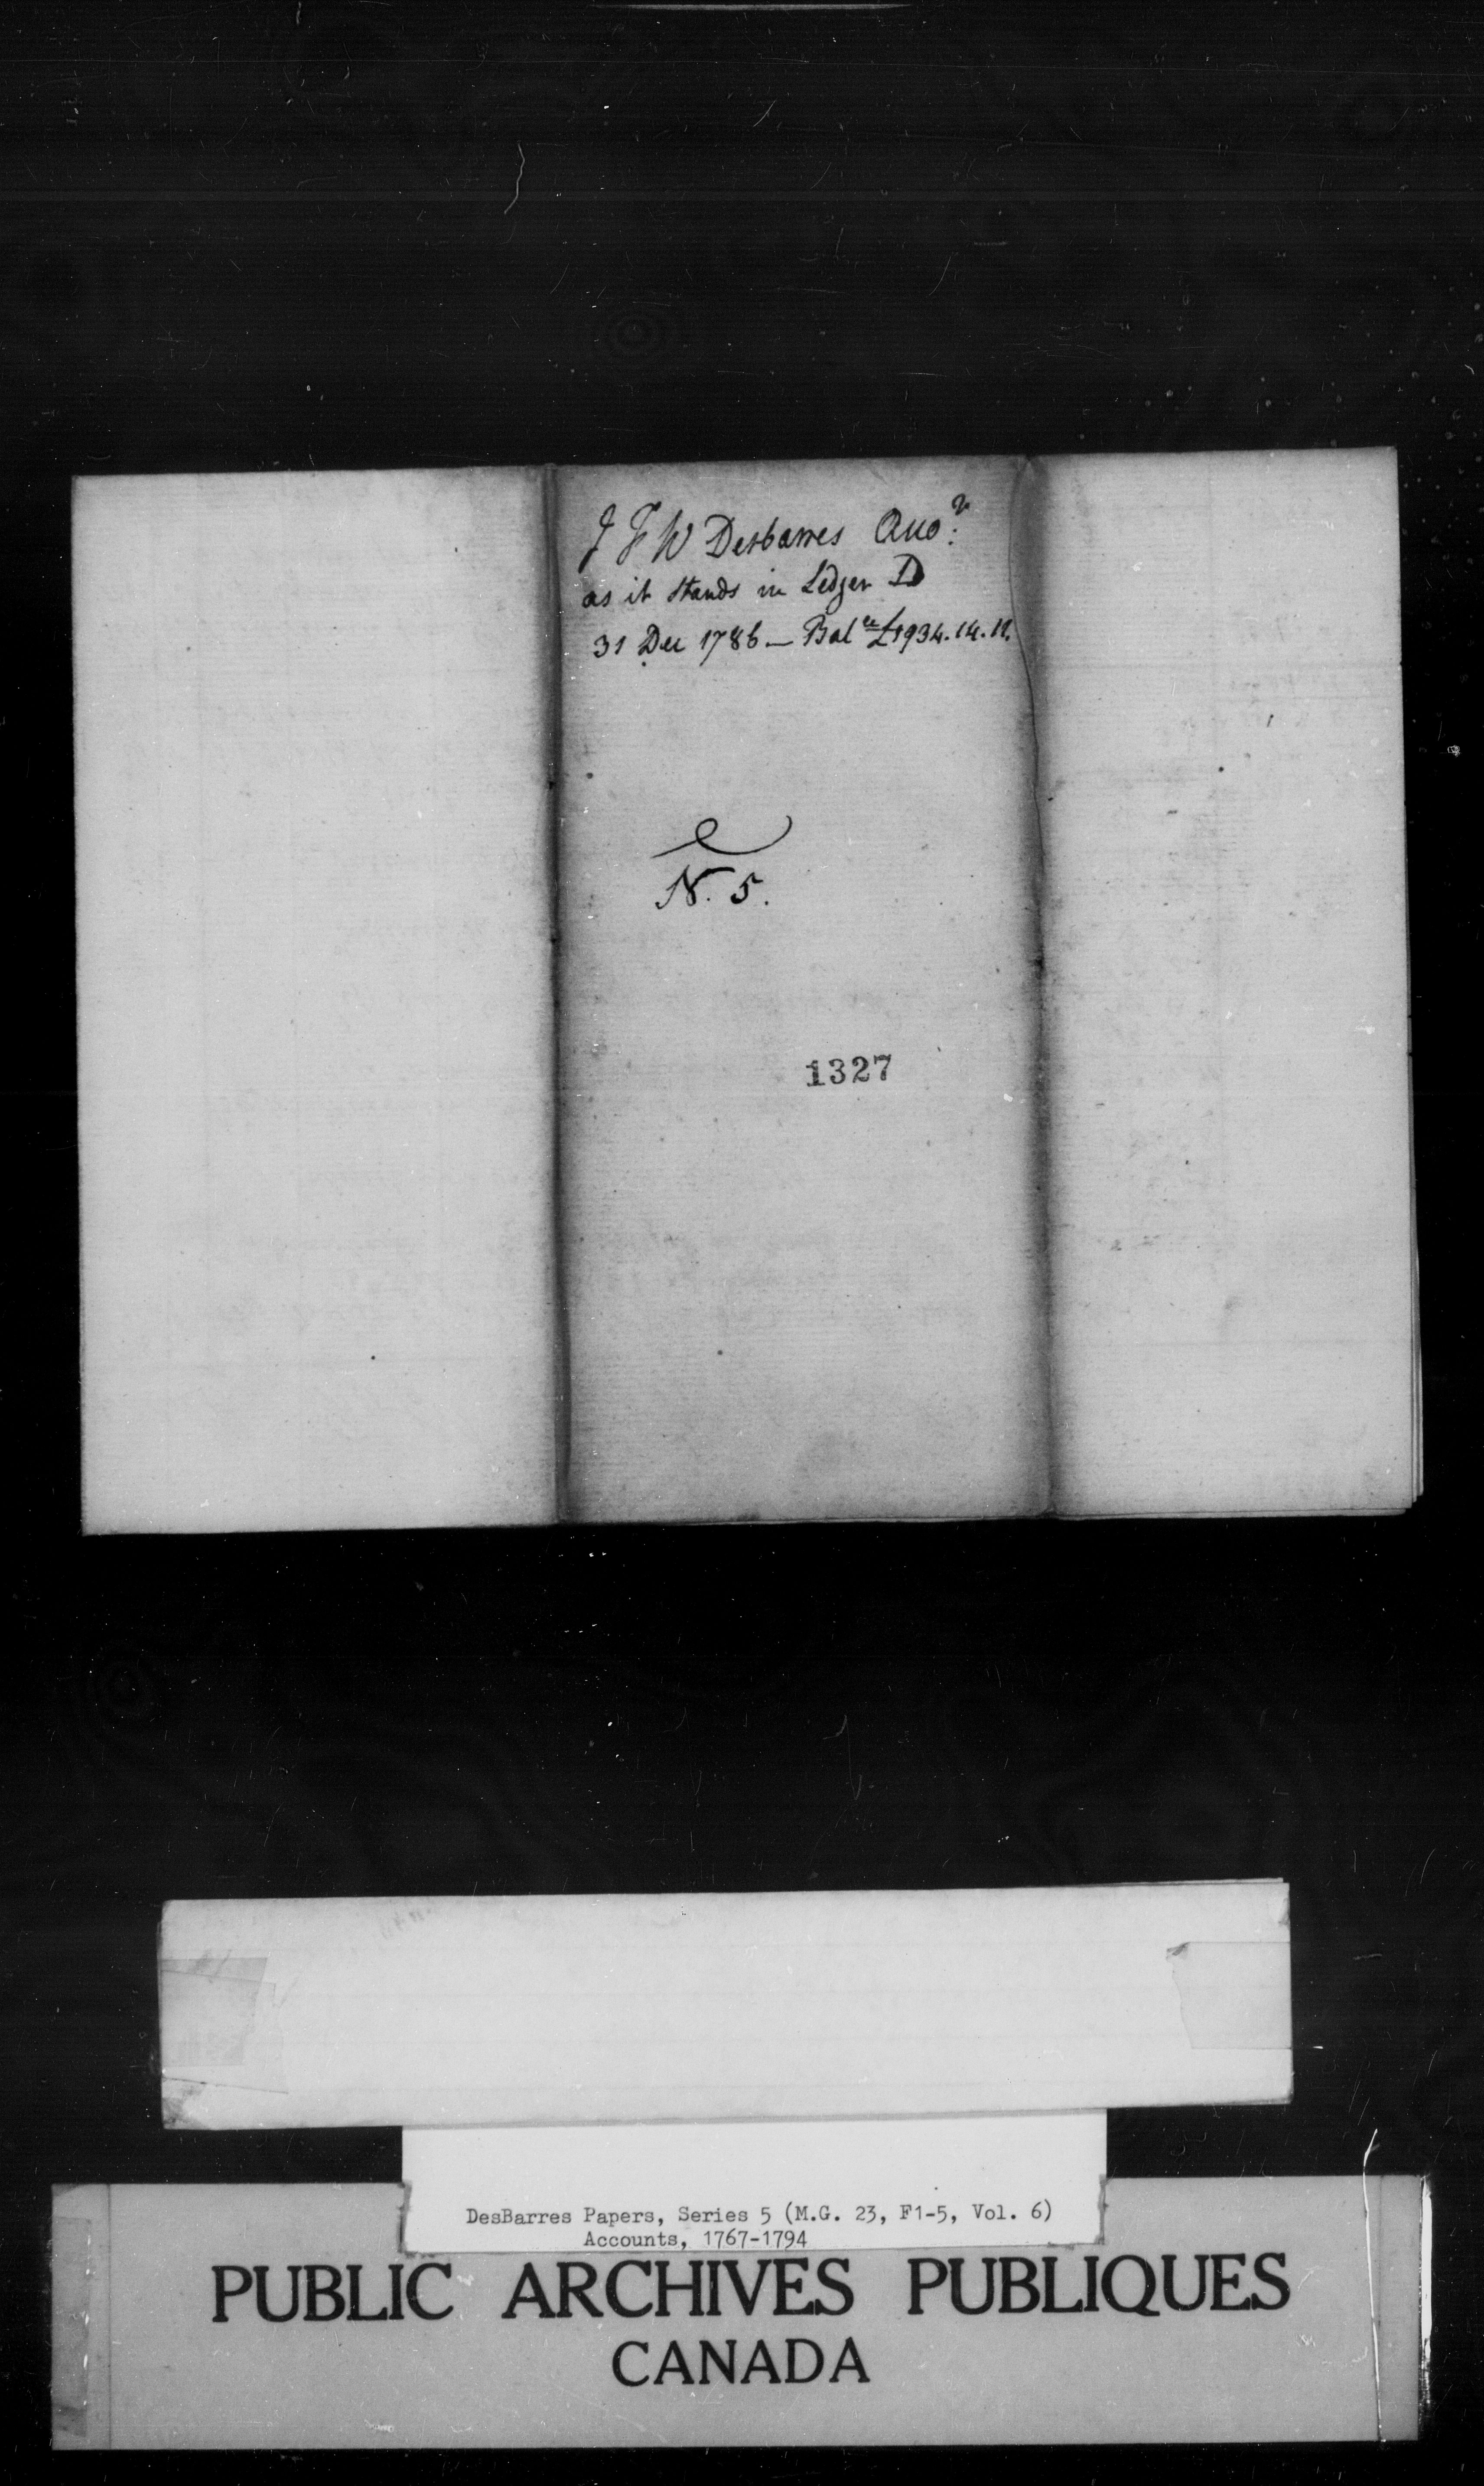 J F W Desbarres
as it Stands in Ledger D
31 Dec 1786 — Bal ce £1934.14.11.
N. 5.
1327
DesBarres Papers, Series 5 (M.G. 23, F1-5, Vol. 6)
Accounts, 1767-1794
PUBLIC ARCHIVES PUBLIQUES
CANADA